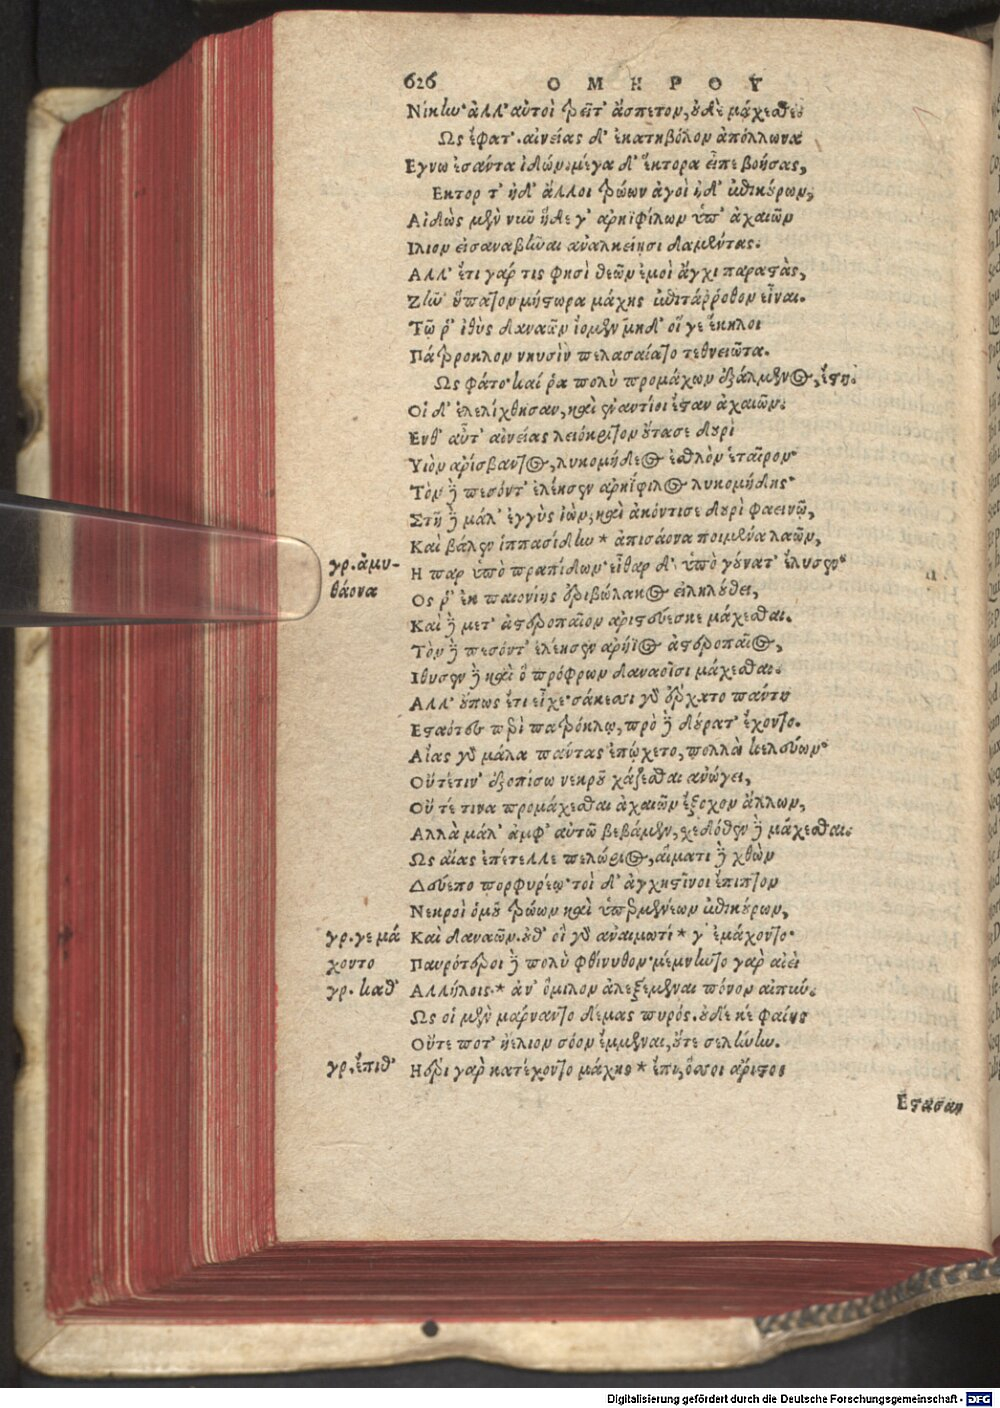 626 ΟΜΗΡΟΥ
Νίκην· ἀλλ' αὐτοὶ τρεῖτ' ἄσπετον, οὐδὲ μάχεσθε.
Ως ἔφατ'. αἰνείας δ' ἑκατηβόλον ἀπόλλωνα
Εγνω ἐσάντα ἰδών. μέγα δ' ἕκτορα εἶπε βοήσας,
Εκτορ τ' ἠδ' ἄλλοι τρώων ἀγοὶ ἠδ' ἐπικούρων,
Αἰδὼς μὲν νῦν ἥδε γ' ἀρηϊφίλων ὑπ' ἀχαιῶν
Ιλιον εἰσαναβῆναι ἀναλκείῃσι δαμέντας.
Αλλ' ἔτι γάρ τίς φησὶ θεῶν ἐμοὶ ἄγχι παραστὰς,
Ζῆν' ὕπατον μήστωρα μάχης ἐπιτάῤῥοθον εἶναι.
Τῷ ῥ' ἰθὺς δαναῶν ἴομεν μηδ' οἵ γε ἕκηλοι
Πάτροκλον νηυσὶν πελασαίατο τεθνειῶτα.
Ως φάτο· καί ῥα πολὺ προμάχων ἐξάλμενος, ἔστη.
Οἱ δ' ἐλελίχθησαν, καὶ ἐναντίοι ἔσταν ἀχαιῶν.
Ενθ' αὖτ' αἰνείας λειόκριτον οὔτασε δουρὶ
Υιὸν ἀρίσβαντος, λυκομήδεος ἐσθλὸν ἑταῖρον·
Τὸν δὲ πεσόντ' ἐλέησεν ἀρηΐφιλος λυκομήδης·
Στῆ δὲ μάλ' ἐγγὺς ἰὼν, καὶ ἀκόντισε δουρὶ φαεινῷ,
Καὶ βάλεν ἱππασίδην * ἀπισάονα ποιμένα λαῶν,
γρ. ἀμυ-
θάονα
Η παρ ὑπὸ πραπίδων· εἶθαρ δ' ὑπὸ γούνατ' ἔλυσεν·
Ος ῥ' ἐκ παιονίης ἐριβώλακος εἰληλούθει,
Καὶ δὲ μετ' ἀστεροπαῖον ἀριστεύεσκε μάχεσθαι.
Τὸν δὲ πεσόντ' ἐλέησεν ἀρήϊος ἀστεροπαῖος,
Ιθυσεν δὲ καὶ ὃ πρόφρων δαναοῖσι μάχεσθαι.
Αλλ' οὔπως ἔτι εἶχε· σάκεσσι γὰρ ἔρχατο πάντῃ
Εσταότες περὶ πατρόκλῳ, πρὸ δὲ δούρατ' ἔχοντο.
Αἴας γὰρ μάλα πάντας ἐπῴχετο, πολλὰ κελεύων·
Οὔτέ τιν' ἐξοπίσω νεκροῦ χάζεσθαι ἀνώγει,
Οὔτέ τινα προμάχεσθαι ἀχαιῶν ἔξοχον ἄλλων,
Αλλὰ μάλ' ἀμφ' αὐτῶ βεβάμεν, σχεδόθεν δὲ μάχεσθαι.
Ως αἴας ἐπέτελλε πελώριος, αἵματι δὲ χθὼν
Δεύετο πορφυρέῳ· τοὶ δ' ἀγχηστῖνοι ἔπιπτον
Νεκροὶ ὁμοῦ τρώων καὶ ὑπερμενέων ἐπικούρων,
Καὶ δαναῶν. οὐδ' οἳ γὰρ ἀναιμωτί * γ' ἐμάχοντο·
γρ. γε μά
χοντο
Παυρότεροι δὲ πολὺ φθίνυθον· μέμνηντο γὰρ αἰεὶ
Αλλήλοις * ἀν' ὅμιλον ἀλεξέμεναι πόνον αἰπύν.
γρ. καθ'
Ως οἱ μὲν μάρναντο δέμας πυρός. οὐδέ κε φαίης
Οὔτε ποτ' ἠέλιον σόον ἔμμεναι, οὔτε σελήνην.
Ηέρι γὰρ κατέχοντο μάχης * ἔπι, ὅσσοι ἄριστοι
γρ. ἔπιθ'
Εστασαν
Digitalisierung gefördert durch die Deutsche Forschungsgemeinschaft - DFG